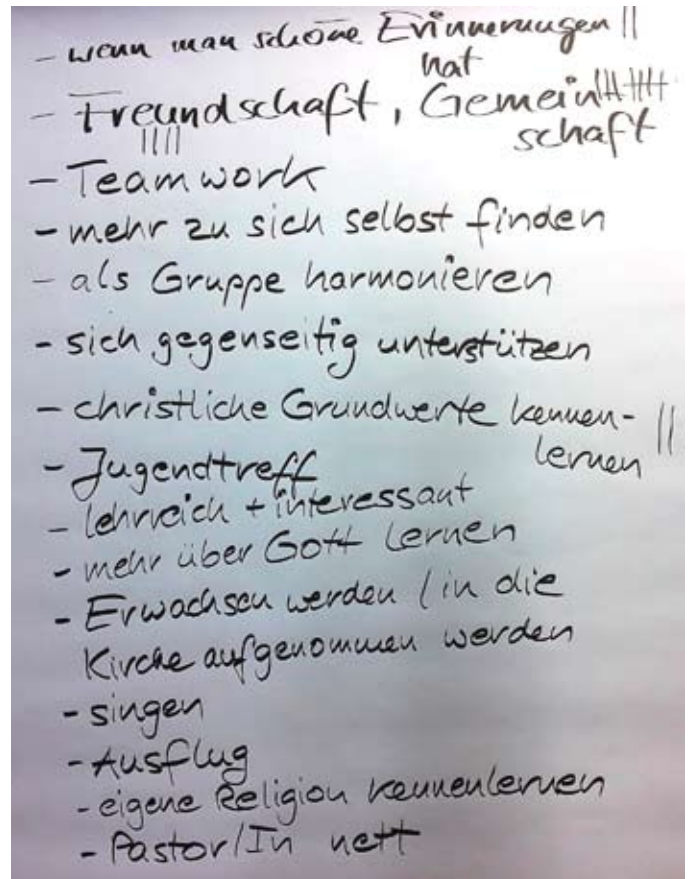 - wenn man schöne Erinnerungen ||
hat
- Freundschaft, Gemein
||||
schaft
- Teamwork
- mehr zu sich selbst finden
- als Gruppe harmonieren
- sich gegenseitig unterstützen
- christliche Grundwerte kennen- ||
lernen
- Jugendtreff
- lehrreich + interessant
- mehr über Gott lernen
- Erwachsen werden / in die
Kirche aufgenommen werden
- singen
- Ausflug
- eigene Religion kennenlernen
- Pastor/In nett